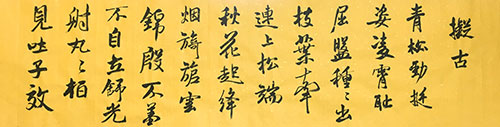 擬古
青松勁挺
姿凌霄耻
屈盤種〻出
枝葉牽
連上松端
秋花起絳
烟旖旎雲
錦殷不羞
不自立舒光
射丸〻柏
見吐子效